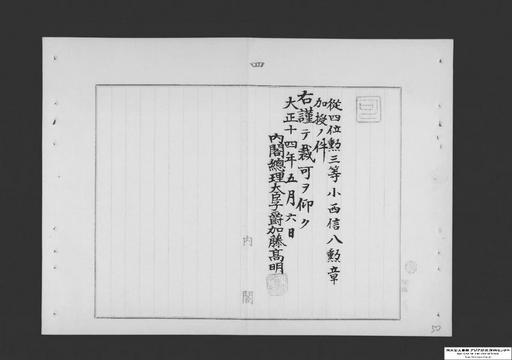 四
從四位勲三等小西信八勲章
加授ノ件
右謹テ裁可ヲ仰ク
大正十四年五月六日
内閣總理大臣子爵加藤高明
内閣
50